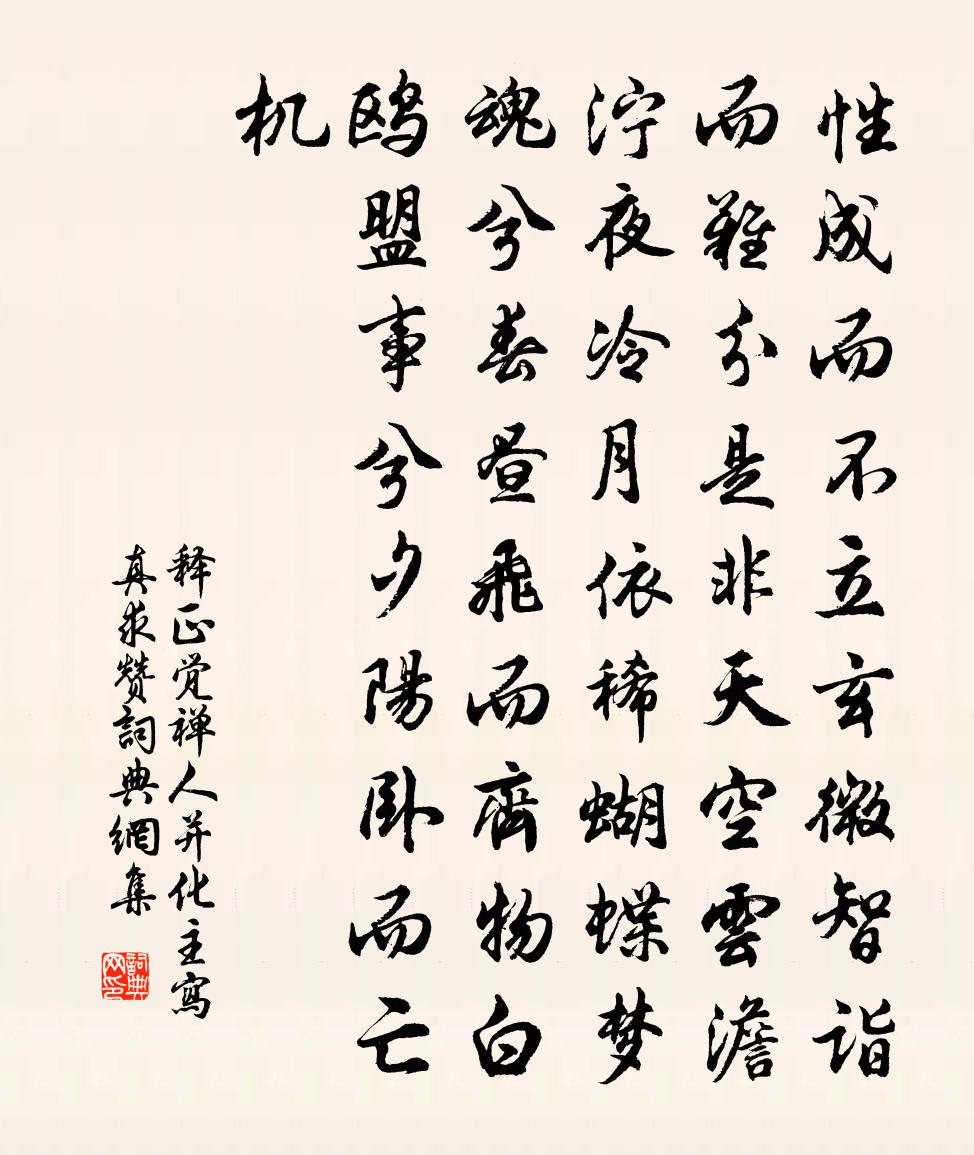 性成而不立玄微智诣
而难分是非天空雲澹
泞夜冷月依稀蝴蝶梦
魂兮春昼飛而齊物白
鸥盟事兮夕陽卧而亡
机
释正觉禅人并化主寫
真求赞詞典網集
詞典网印